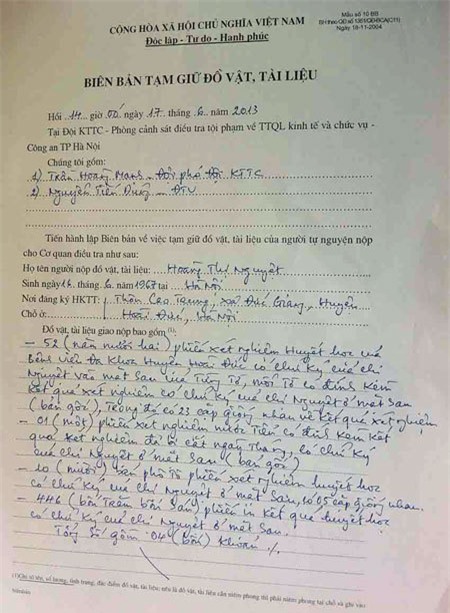 Mẫu số 10 BB
BH theo QĐ số 1351/QĐ-BCA(C11)
Ngày 18-11-2004
CỘNG HÒA XÃ HỘI CHỦ NGHĨA VIỆT NAM
Độc lập - Tự do - Hạnh phúc
BIÊN BẢN TẠM GIỮ ĐỒ VẬT, TÀI LIỆU
Hồi 14 giờ 00 ngày 17 tháng 6 năm 2013
Tại Đội KTTC - Phòng cảnh sát điều tra tội phạm về TTQL kinh tế và chức vụ -
Công an TP Hà Nội
Chúng tôi gồm:
1) Trần Hoàng - Đội phó Đội KTTC
2) Nguyễn Tiến Dũng - ĐTV
Tiến hành lập Biên bản về việc tạm giữ đồ vật, tài liệu của người tự nguyện nộp
cho Cơ quan điều tra như sau:
Họ tên người nộp đồ vật, tài liệu: Hoàng Thị Nguyệt
Sinh ngày 16 tháng 6 năm 1968 tại Hà Nội
Nơi đăng ký HKTT: Thôn Cao Trung, xã Đức Giang, Huyện
Chỗ ở: Hoài Đức, Hà Nội
Đồ vật, tài liệu giao nộp bao gồm (1):
- 52 (năm mươi hai) phiếu xét nghiệm Huyết học của
Bệnh viện Đa Khoa Huyện Hoài Đức có chữ ký của chị
Nguyệt vào mặt sau của từng tờ, mỗi tờ có đính kèm
kết quả xét nghiệm có chữ ký của chị Nguyệt ở mặt sau
(bản gốc), Trong đó có 23 cặp giống nhau về kết quả xét nghiệm
- 01 (một) phiếu xét nghiệm nước Tiểu có đính kèm kết
quả xét nghiệm đã bị cắt ngày tháng, có chữ ký
của chị Nguyệt ở mặt sau (bản gốc)
- 10 (mười) bản phô tô phiếu xét nghiệm huyết học
có chữ ký của chị Nguyệt ở mặt sau, có 05 cặp giống nhau.
- 446 (bốn trăm bốn sáu) phiếu in kết quả huyết học
có chữ ký của chị Nguyệt ở mặt sau.
Tổng số gồm 04 (bốn) khoản %.
(1) Ghi rõ tên, số lượng, tình trạng, đặc điểm đồ vật, tài liệu; nếu là đồ vật, tài liệu cần niêm phong thì phải niêm phong tại chỗ và ghi vào